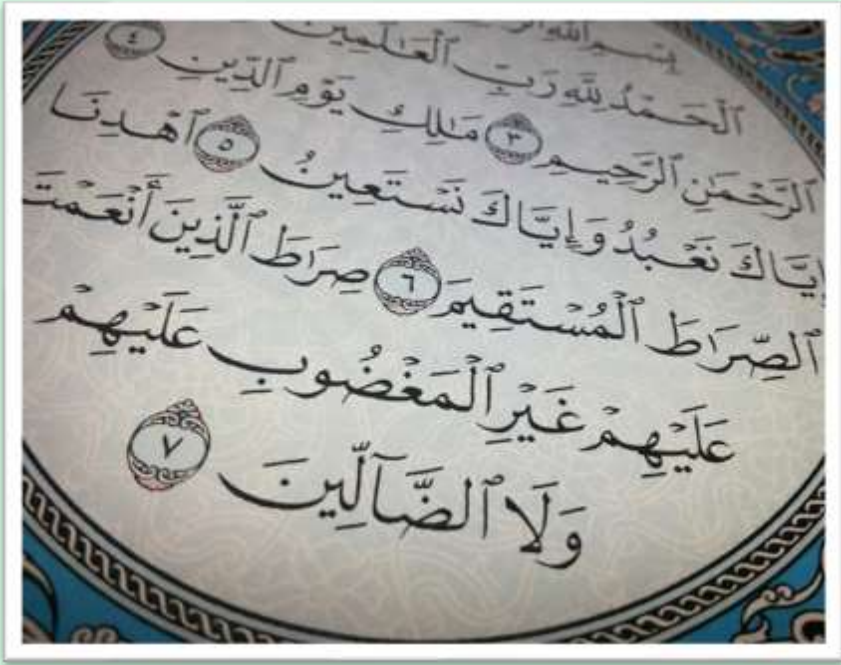 بِسْمِ ٱللَّهِ
ٱلْحَمْدُ لِلَّهِ رَبِّ ٱلْعَـٰلَمِينَ
ٱلرَّحْمَـٰنِ ٱلرَّحِيمِ ٣ مَـٰلِكِ يَوْمِ ٱلدِّينِ ٤
إِيَّاكَ نَعْبُدُ وَإِيَّاكَ نَسْتَعِينُ ٥ ٱهْدِنَا
ٱلصِّرَٰطَ ٱلْمُسْتَقِيمَ ٦ صِرَٰطَ ٱلَّذِينَ أَنْعَمْتَ
عَلَيْهِمْ غَيْرِ ٱلْمَغْضُوبِ عَلَيْهِمْ
وَلَا ٱلضَّآلِّينَ ٧